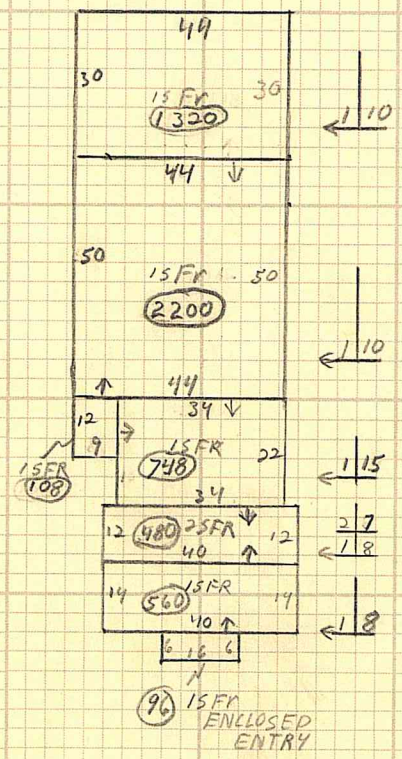 44
30 1S Fr 30
1320
1 10
44
50 1S Fr 50
2200
1 10
44
34
12
9 1S FR 22
748
1 15
1SFR
108
34
12 480 2SFR 12
40
2 7
1 8
14 560 1SFR 14
40
1 8
6 16 6
96 1S Fr
ENCLOSED
ENTRY